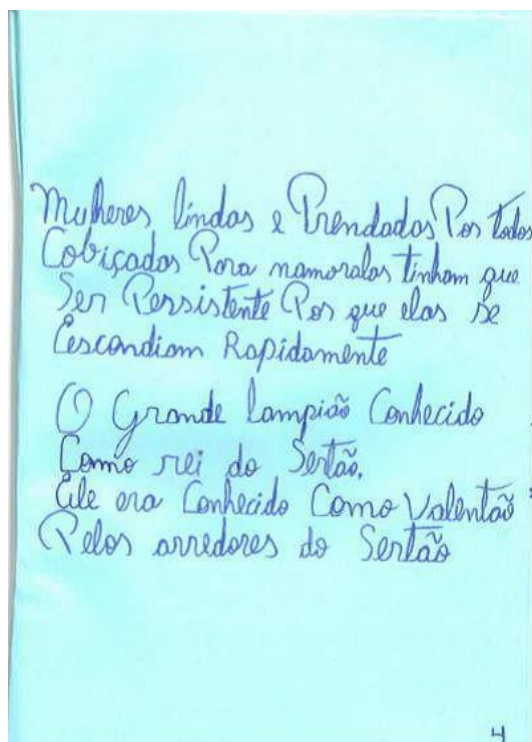 Mulheres lindas e Prendadas Por todos
Cobiçadas Para namoralas tinham que
Ser Persistente Por que elas se
Escondiam Rapidamente
O Grande lampião Conhecido
Como rei do Sertão.
Ele era Conhecido Como Valentão
Pelos arredores do Sertão
4